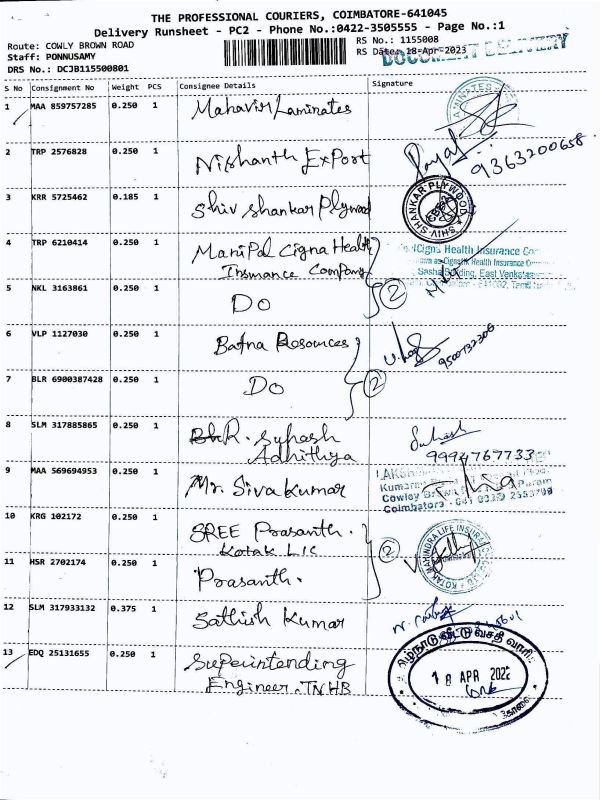 THE PROFESSIONAL COURIERS, COIMBATORE-641045
Delivery Runsheet - PC2 - Phone No.:0422-3505555 - Page No.:1
Route: COWLY BROWN ROAD
Staff: PONNUSAMY
DRS No.: DCJB115500801
RS No.: 1155008
RS Date: 18-Apr-2023
DOCUMENT DELIVERY
S No Consignment No Weight PCS Consignee Details Signature
1 MAA 859757285 0.250 1 Mahavir Laminates
2 TRP 2576828 0.250 1 Nishanth Export
9363200658
3 KRR 5725462 0.185 1 Shiv shankar Plywood
SHIV SHANKAR PLYWOOD
4 TRP 6210414 0.250 1 ManiPal Cigna Health
Insurance Company
Cigna Health Insurance
5 NKL 3163861 0.250 1 Do
2
6 VLP 1127030 0.250 1 Batna Resources
7 BLR 6900387428 0.250 1 Do
2
8 SLM 317885865 0.250 1 R. Subash
Adhithya
9994767733
9 MAA 569694953 0.250 1 Mr. Siva Kumar
Coimbatore
10 KRG 102172 0.250 1 SREE Prasanth.
Kotak LIC
2
KOTAK MAHINDRA LIFE INSURANCE
11 HSR 2702174 0.250 1 Prasanth.
12 SLM 317933132 0.375 1 Sathish Kumar
13 EDQ 25131655 0.250 1 Superintending
Engineer. TNHB
தமிழ்நாடு வீட்டு வசதி வாரியம்
18 APR 202